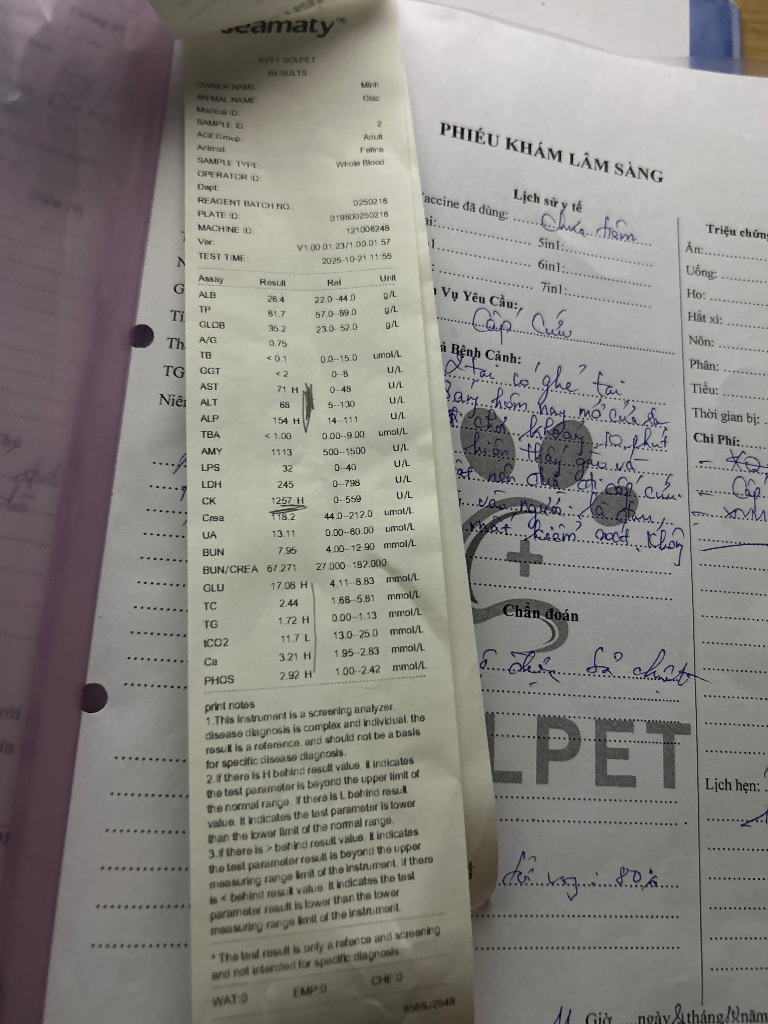 Seamaty®
BVTY SOLPET
RESULTS
OWNER NAME: Minh
ANIMAL NAME: Giac
Medical ID:
SAMPLE ID: 2
AGEGroup: Adult
Animal: Feline
SAMPLE TYPE: Whole Blood
OPERATOR ID:
Dept:
REAGENT BATCH NO.: 0250216
PLATE ID: 019800250216
MACHINE ID: 121006248
Ver: V1.00.01.23/1.00.01.57
TEST TIME: 2025-10-21 11:55
Assay Result Ref Unit
ALB 26.4 22.0--44.0 g/L
TP 61.7 57.0--89.0 g/L
GLOB 35.2 23.0--52.0 g/L
A/G 0.75
TB <0.1 0.0--15.0 umol/L
GGT <2 0--8 U/L
AST 71 H 0--48 U/L
ALT 68 5--130 U/L
ALP 154 H 14--111 U/L
TBA <1.00 0.00--9.00 umol/L
AMY 1113 500--1500 U/L
LPS 32 0--40 U/L
LDH 245 0--798 U/L
CK 1257 H 0--559 U/L
Crea 118.2 44.0--212.0 umol/L
UA 13.11 0.00--60.00 umol/L
BUN 7.95 4.00--12.90 mmol/L
BUN/CREA 67.271 27.000--182.000
GLU 17.06 H 4.11--8.83 mmol/L
TC 2.44 1.68--5.81 mmol/L
TG 1.72 H 0.00--1.13 mmol/L
tCO2 11.7 L 13.0--25.0 mmol/L
Ca 3.21 H 1.95--2.83 mmol/L
PHOS 2.92 H 1.00--2.42 mmol/L
print notes
1.This instrument is a screening analyzer,
disease diagnosis is complex and individual, the
result is a reference, and should not be a basis
for specific disease diagnosis.
2.If there is H behind result value, it indicates
the test parameter is beyond the upper limit of
the normal range. If there is L behind result
value. It indicates the test parameter is lower
than the lower limit of the normal range.
3.If there is > behind result value. It indicates
the test parameter result is beyond the upper
measuring range limit of the instrument. if there
is < behind result value. It indicates the test
parameter result is lower than the lower
measuring range limit of the instrument.
* The test result is only a refence and screening
and not intended for specific diagnosis.
WAT:0 EMP:0 CHE:0
PHIẾU KHÁM LÂM SÀNG
Lịch sử y tế
Vaccine đã dùng: Chưa tiêm
5in1:
6in1:
7in1:
Vụ Yêu Cầu:
Cấp Cứu
Bệnh Cảnh:
tai có ghẻ tai
hôm nay mở cửa
chơi khoảng 10 phút
thấy
nên đưa đi cấp cứu
vào người
mất kiểm soát. không
Chẩn đoán
LPET
80%
Giờ ngày tháng năm
Triệu chứng
Ăn:
Uống:
Ho:
Hắt xì:
Nôn:
Phân:
Tiểu:
Thời gian bị:
Chi Phí:
Cấp
Lịch hẹn: